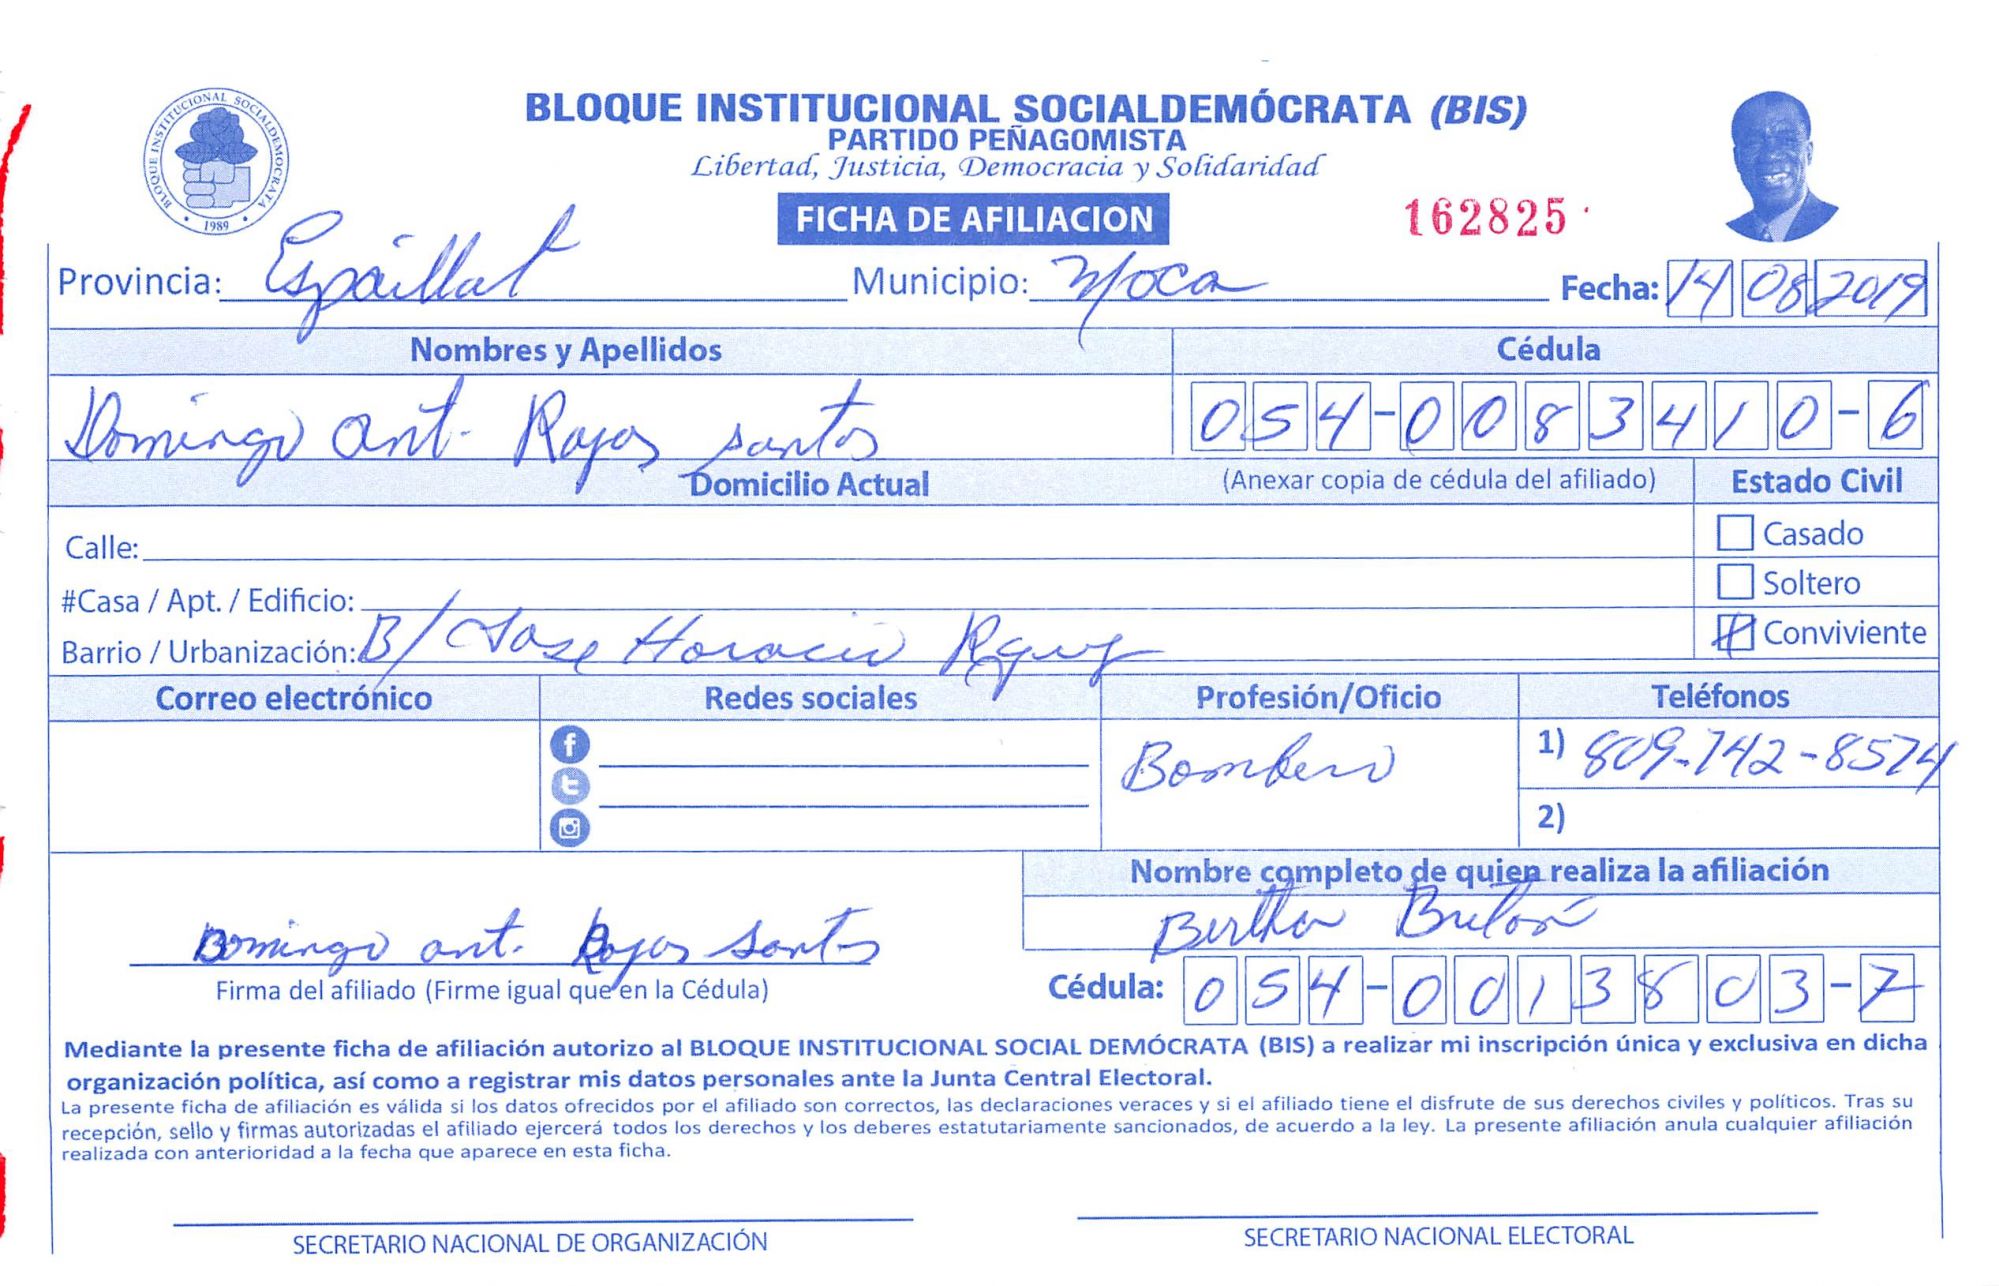 BLOQUE INSTITUCIONAL SOCIALDEMOCRATA
1989
BLOQUE INSTITUCIONAL SOCIALDEMÓCRATA (BIS)
PARTIDO PEÑAGOMISTA
Libertad, Justicia, Democracia y Solidaridad
FICHA DE AFILIACION
162825
Provincia: Espaillat Municipio: Moca Fecha: 14 08 2019
Nombres y Apellidos Cédula
Domingo Ant. Rojas Santos 054-0083410-6
Domicilio Actual (Anexar copia de cédula del afiliado) Estado Civil
Calle: Casado
#Casa / Apt. / Edificio: Soltero
Barrio / Urbanización: B/ Jose Horacio Conviviente
Correo electrónico Redes sociales Profesión/Oficio Teléfonos
Bombero 1) 809-742-8574
2)
Nombre completo de quien realiza la afiliación
Bertha Bretón
Domingo ant. Rojas Santos
Firma del afiliado (Firme igual que en la Cédula) Cédula: 054-0013803-7
Mediante la presente ficha de afiliación autorizo al BLOQUE INSTITUCIONAL SOCIAL DEMÓCRATA (BIS) a realizar mi inscripción única y exclusiva en dicha
organización política, así como a registrar mis datos personales ante la Junta Central Electoral.
La presente ficha de afiliación es válida si los datos ofrecidos por el afiliado son correctos, las declaraciones veraces y si el afiliado tiene el disfrute de sus derechos civiles y políticos. Tras su
recepción, sello y firmas autorizadas el afiliado ejercerá todos los derechos y los deberes estatutariamente sancionados, de acuerdo a la ley. La presente afiliación anula cualquier afiliación
realizada con anterioridad a la fecha que aparece en esta ficha.
SECRETARIO NACIONAL DE ORGANIZACIÓN SECRETARIO NACIONAL ELECTORAL